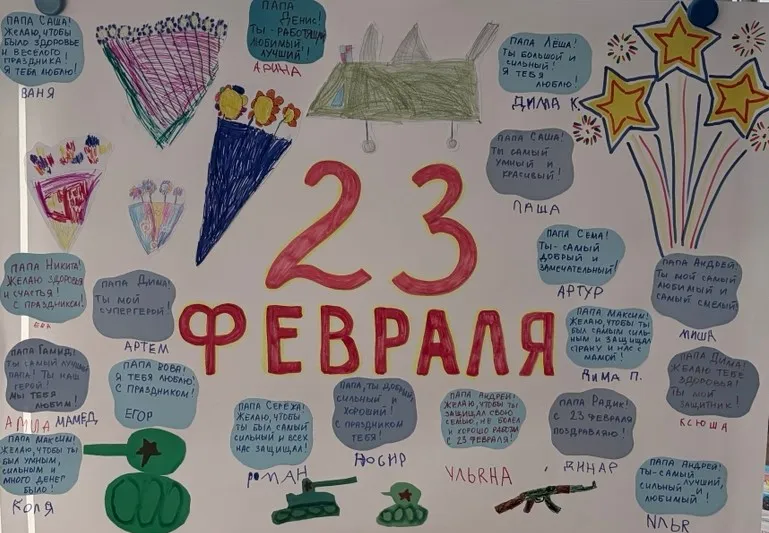 ПАПА САША!
ЖЕЛАЮ, ЧТОБЫ
БЫЛО ЗДОРОВЬЕ
И ВЕСЁЛОГО
ПРАЗДНИКА!
Я ТЕБЯ ЛЮБЛЮ!
ВАНЯ
ПАПА
ДЕНИС!
ТЫ - РАБОТЯЩИЙ
ЛЮБИМЫЙ,
ЛУЧШИЙ!
АРИНА
ПАПА ЛЁША!
ТЫ БОЛЬШОЙ И
СИЛЬНЫЙ!
Я ТЕБЯ
ЛЮБЛЮ!
ДИМА К.
ПАПА САША!
ТЫ САМЫЙ
УМНЫЙ И
КРАСИВЫЙ!
ПАША
23
ФЕВРАЛЯ
ПАПА СЁМА!
ТЫ - САМЫЙ
ДОБРЫЙ И
ЗАМЕЧАТЕЛЬНЫЙ!
АРТУР
ПАПА АНДРЕЙ!
ТЫ МОЙ САМЫЙ
ЛЮБИМЫЙ И
САМЫЙ СМЕЛЫЙ
МИША
ПАПА НИКИТА!
ЖЕЛАЮ ЗДОРОВЬЯ
И СЧАСТЬЯ!
С ПРАЗДНИКОМ!
ЕВА
ПАПА ДИМА!
ТЫ МОЙ
СУПЕРГЕРОЙ!
АРТЕМ
ПАПА МАКСИМ!
ЖЕЛАЮ, ЧТОБЫ ТЫ
БЫЛ САМЫМ СИЛЬ-
НЫМ И ЗАЩИЩАЛ
СТРАНУ И НАС С
МАМОЙ!
ДИМА П.
ПАПА ГАМИД!
ТЫ САМЫЙ ЛУЧШИЙ
ПАПА! ТЫ НАШ
ГЕРОЙ!
МЫ ТЕБЯ
ЛЮБИМ!
МАМЕД
ПАПА ВОВА!
Я ТЕБЯ ЛЮБЛЮ!
С ПРАЗДНИКОМ!
ЕГОР
ПАПА ДИМА!
ЖЕЛАЮ ТЕБЕ
ЗДОРОВЬЯ!
ТЫ МОЙ
ЗАЩИТНИК!
КСЮША
ПАПА МАКСИМ!
ЖЕЛАЮ, ЧТОБЫ ТЫ
БЫЛ УМНЫМ,
СИЛЬНЫМ И
МНОГО ДЕНЕГ
БЫЛО!
КОЛЯ
ПАПА СЕРЁЖА!
ЖЕЛАЮ, ЧТОБЫ
ТЫ БЫЛ САМЫЙ
СИЛЬНЫЙ И ВСЕХ
НАС ЗАЩИЩАЛ!
РОМАН
ПАПА, ТЫ ДОБРЫЙ,
СИЛЬНЫЙ И
ХОРОШИЙ!
С ПРАЗДНИКОМ
ТЕБЯ!
ПАПА АНДРЕЙ!
ЖЕЛАЮ, ЧТОБЫ ТЫ
ЗАЩИЩАЛ СВОЮ
СЕМЬЮ, НЕ БОЛЕЛ
И ХОРОШО РАБОТАЛ
С 23 ФЕВРАЛЯ!
УЛЬЯНА
ПАПА РАДИК!
С 23 ФЕВРАЛЯ
ПОЗДРАВЛЯЮ!
ДИНАР
ПАПА АНДРЕЙ!
ТЫ - САМЫЙ
СИЛЬНЫЙ, ЛУЧШИЙ
И ЛЮБИМЫЙ!